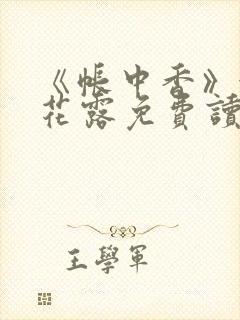 《帳中香》
花露免費讀
王學軍